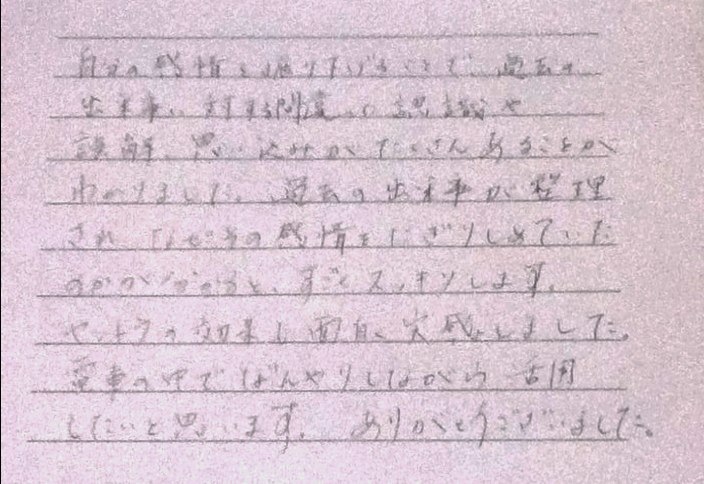 自分の感情を掘り下げることで、過去の
出来事に対する間違った認識や
誤解、思い込みがたくさんあることが
わかりました。過去の出来事が整理
され、なぜその感情をにぎりしめていた
のかが分かると、すごくスッキリします。
の効果も面白く実感しました。
電車の中でぼんやりしながら活用
したいと思います。ありがとうございました。